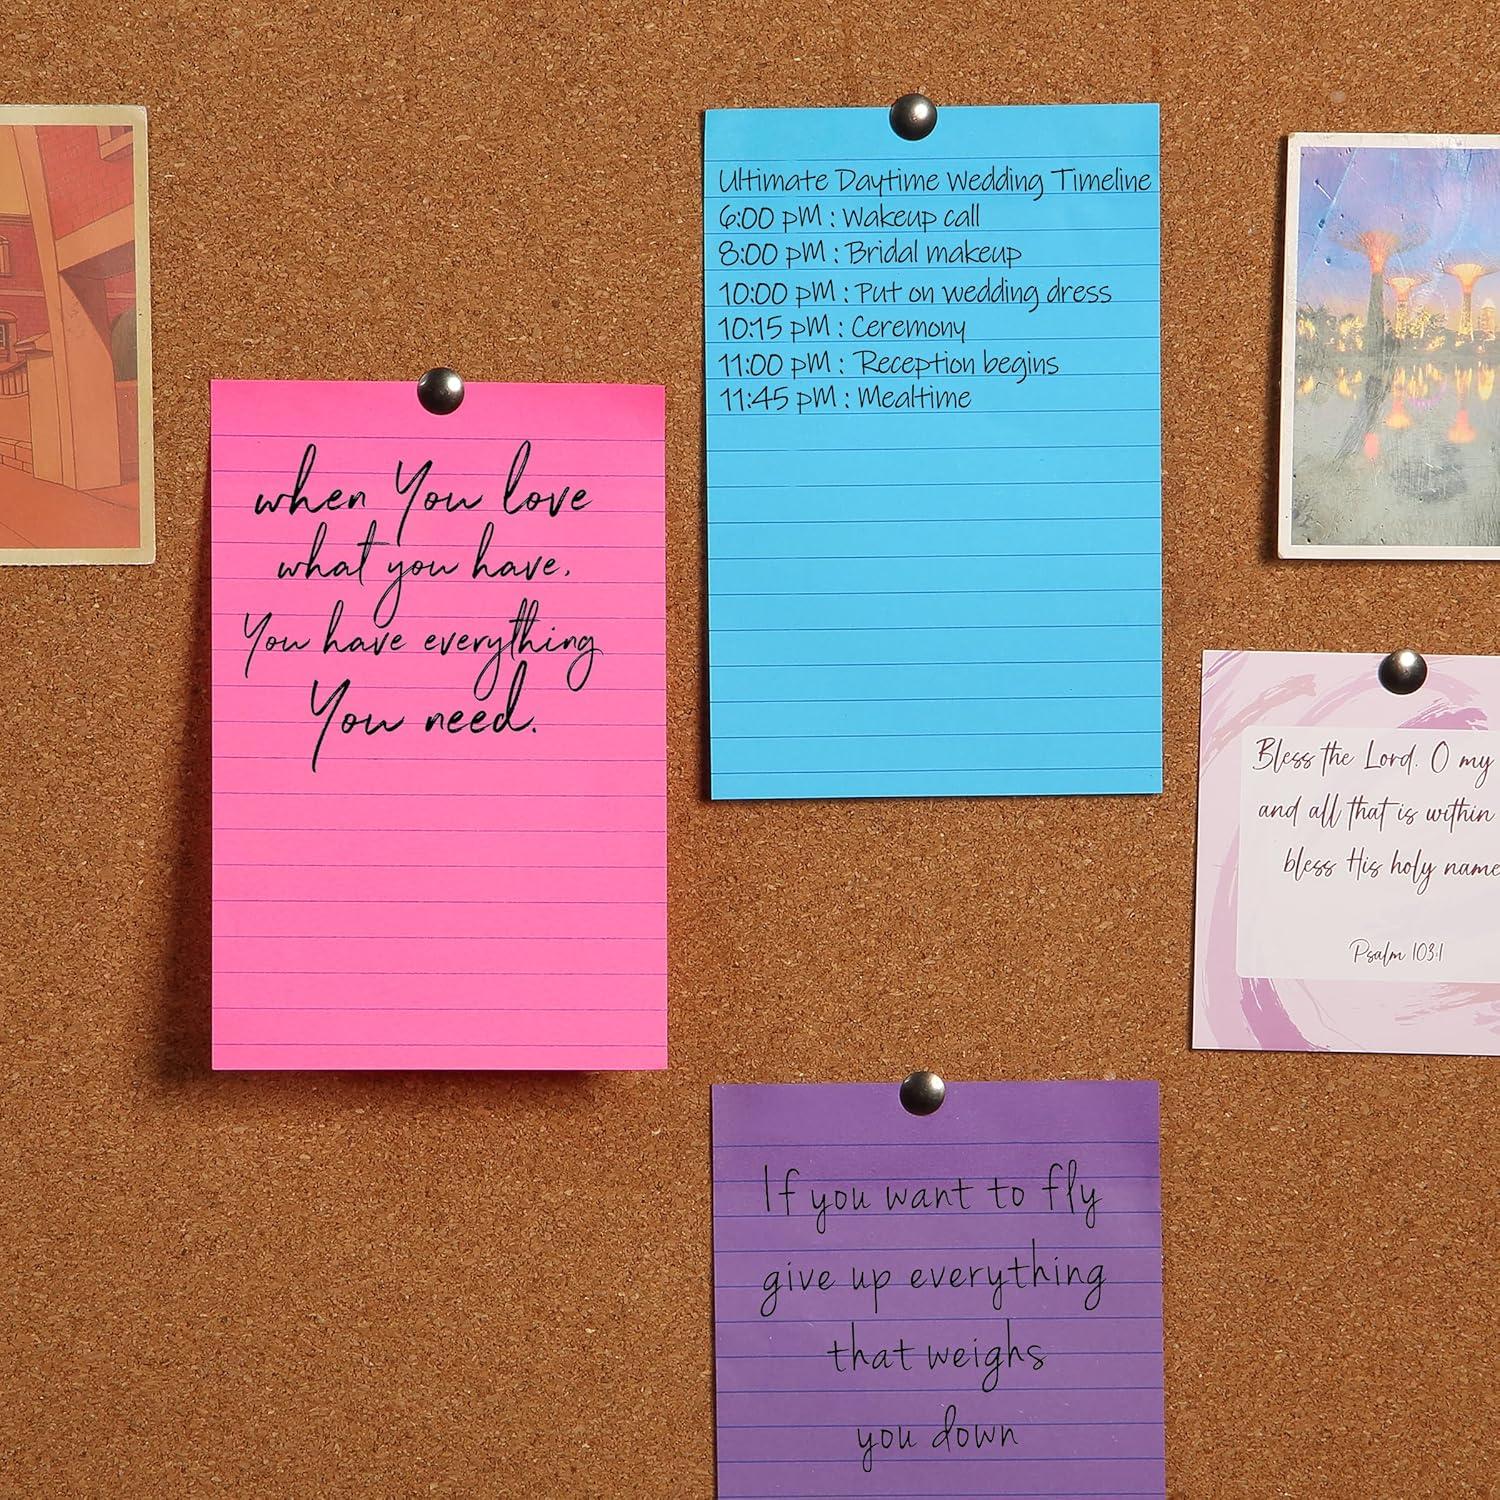 when You love
what you have.
You have everything
You need.
Ultimate Daytime Wedding Timeline
6:00 PM : Wakeup call
8:00 PM : Bridal makeup
10:00 PM : Put on wedding dress
10:15 PM : Ceremony
11:00 PM : Reception begins
11:45 PM : Mealtime
Bless the Lord. O my
and all that is within
bless His holy name
Psalm 103:1
If you want to fly
give up everything
that weighs
you down